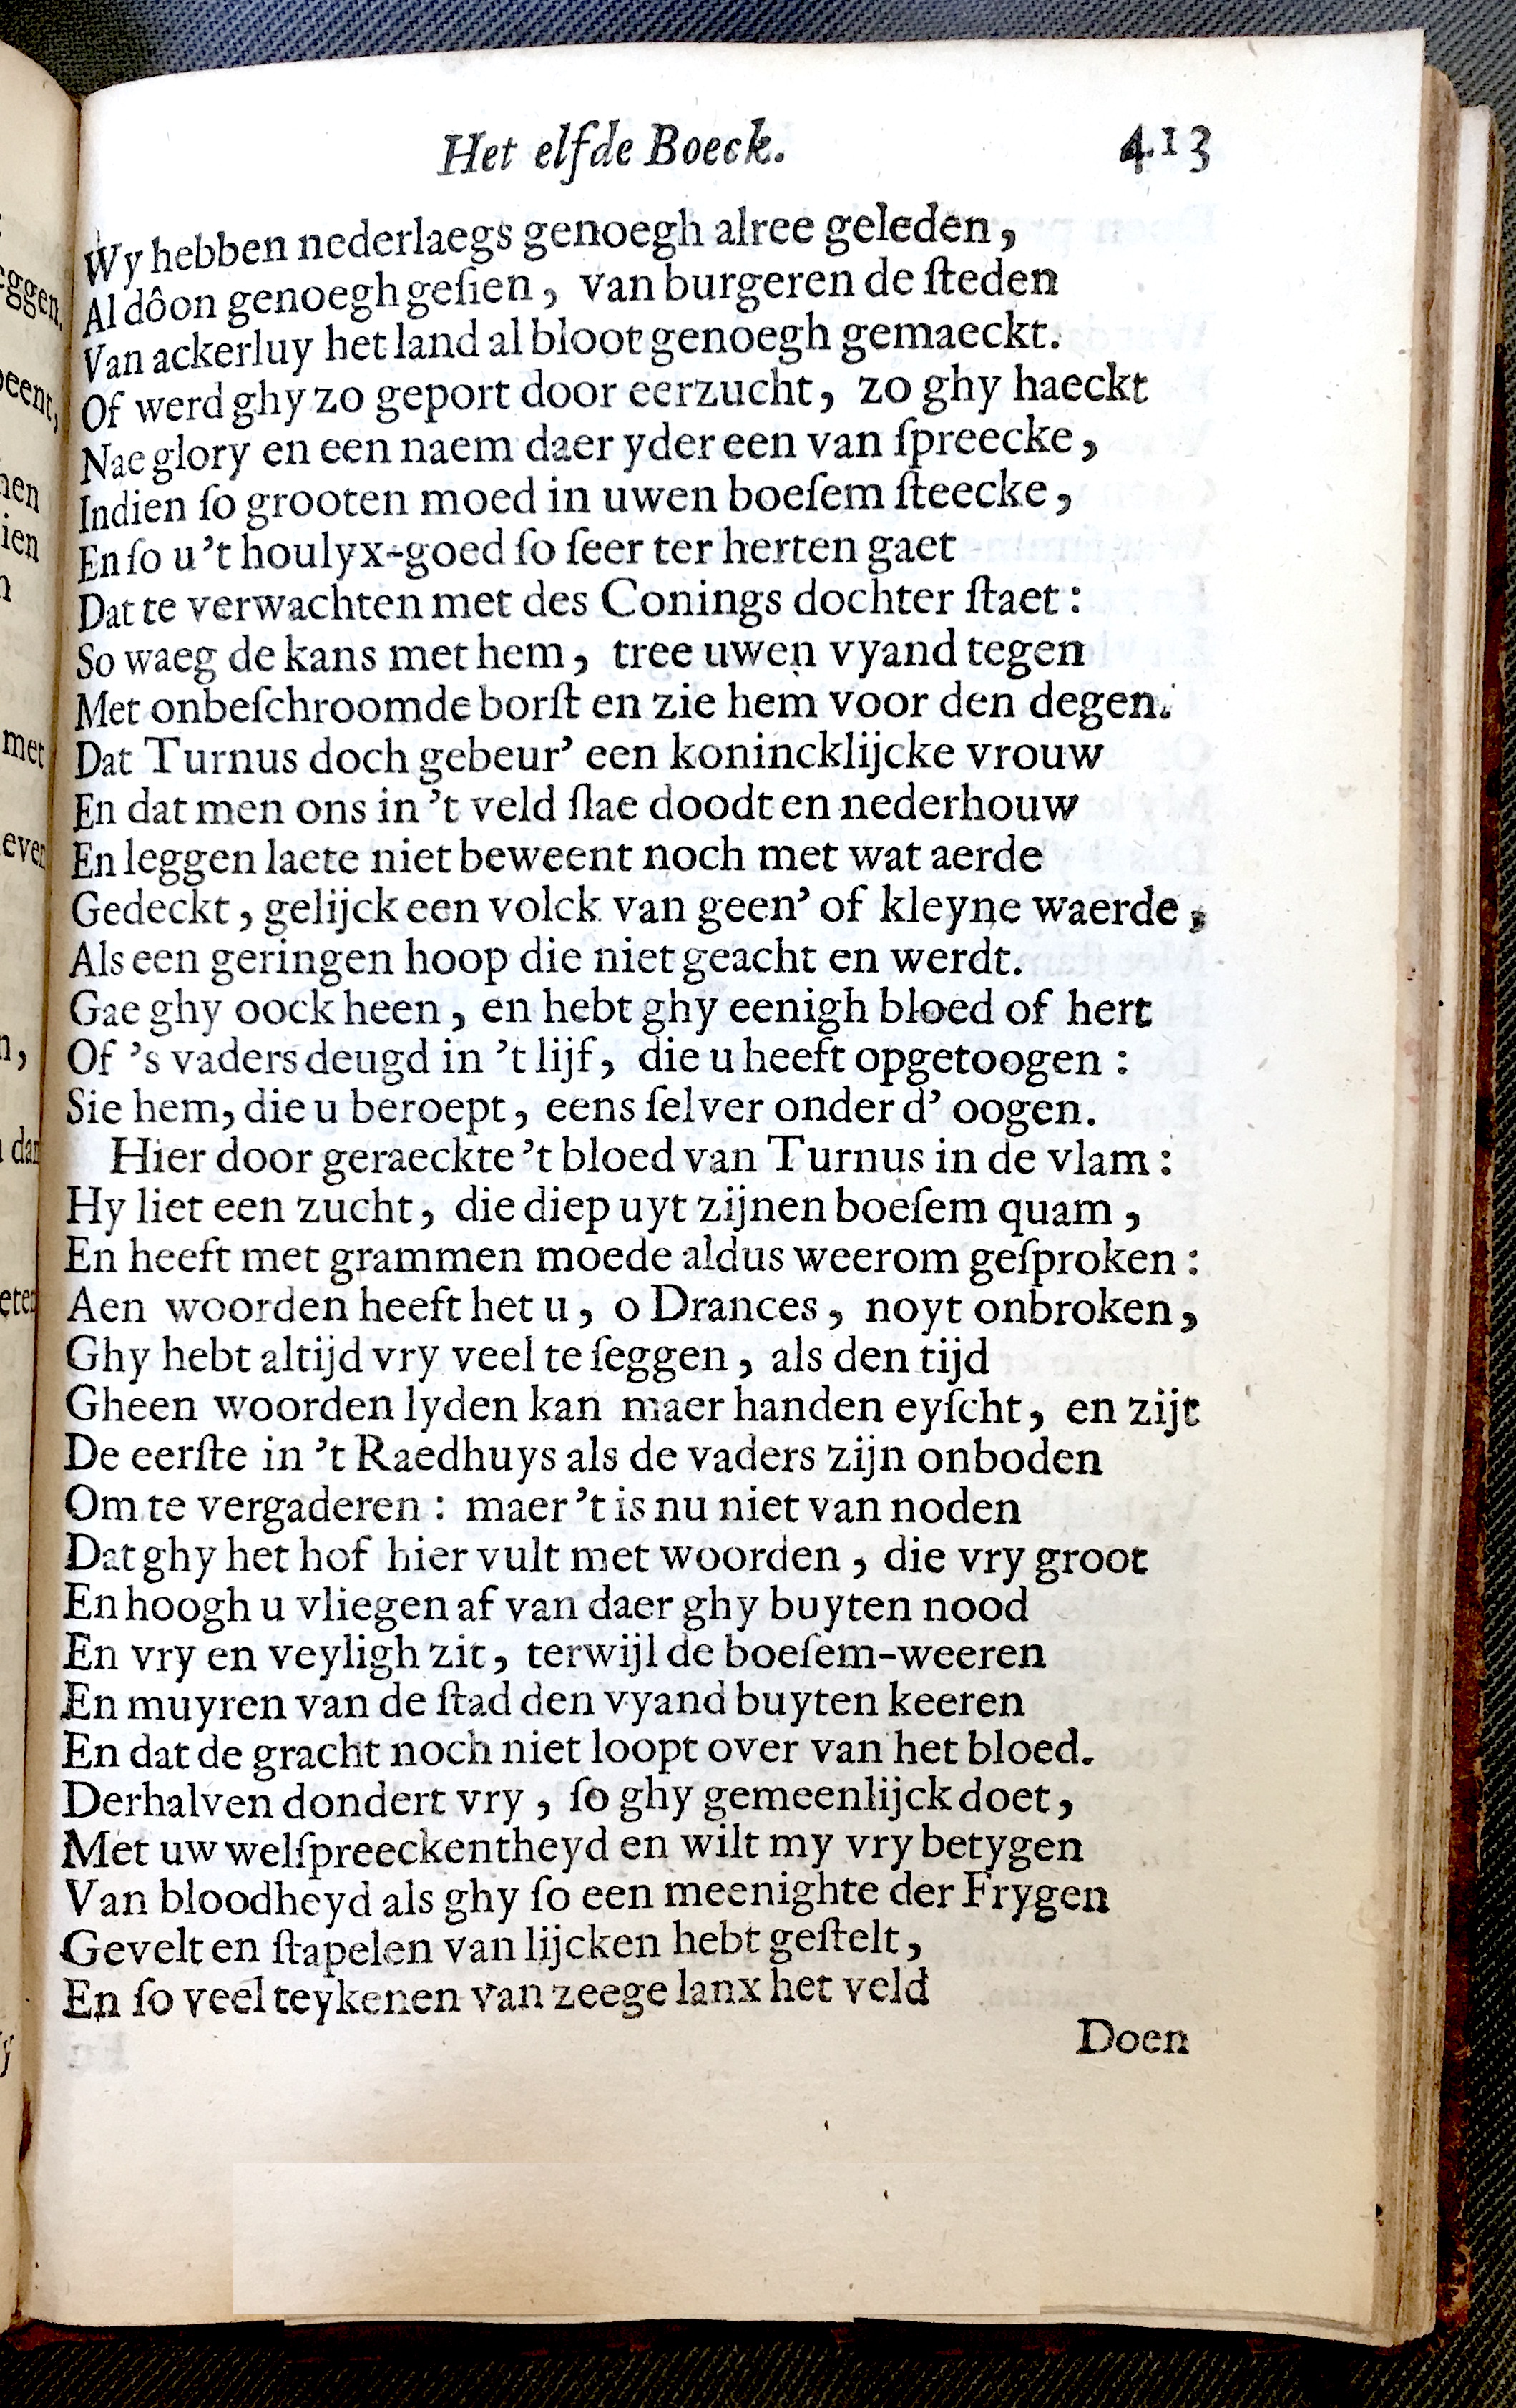 Het elfde Boeck. 413
Wy hebben nederlaegs genoegh alree geleden,
Al dôon genoegh geſien, van burgeren de ſteden
Van ackerluy het land al bloot genoegh gemaeckt.
Of werd ghy zo geport door eerzucht, zo ghy haeckt
Nae glory en een naem daer yder een van ſpreecke,
Indien ſo grooten moed in uwen boeſem ſteecke,
En ſo u 't houlyx-goed ſo ſeer ter herten gaet
Dat te verwachten met des Conings dochter ſtaet:
So waeg de kans met hem, tree uwen vyand tegen
Met onbeſchroomde borſt en zie hem voor den degen.
Dat Turnus doch gebeur' een konincklijcke vrouw
En dat men ons in 't veld ſlae doodt en nederhouw
En leggen laete niet beweent noch met wat aerde
Gedeckt, gelijck een volck van geen' of kleyne waerde,
Als een geringen hoop die niet geacht en werdt.
Gae ghy oock heen, en hebt ghy eenigh bloed of hert
Of 's vaders deugd in 't lijf, die u heeft opgetoogen:
Sie hem, die u beroept, eens ſelver onder d' oogen.
Hier door geraeckte 't bloed van Turnus in de vlam:
Hy liet een zucht, die diep uyt zijnen boeſem quam,
En heeft met grammen moede aldus weerom geſproken:
Aen woorden heeft het u, o Drances, noyt onbroken,
Ghy hebt altijd vry veel te ſeggen, als den tijd
Gheen woorden lyden kan maer handen eyſcht, en zijt
De eerſte in 't Raedhuys als de vaders zijn onboden
Om te vergaderen: maer 't is nu niet van noden
Dat ghy het hof hier vult met woorden, die vry groot
En hoogh u vliegen af van daer ghy buyten nood
En vry en veyligh zit, terwijl de boeſem-weeren
En muyren van de ſtad den vyand buyten keeren
En dat de gracht noch niet loopt over van het bloed.
Derhalven dondert vry, ſo ghy gemeenlijck doet,
Met uw welſpreeckentheyd en wilt my vry betygen
Van bloodheyd als ghy ſo een meenighte der Frygen
Gevelt en ſtapelen van lijcken hebt geſtelt,
En ſo veel teykenen van zeege lanx het veld
Doen